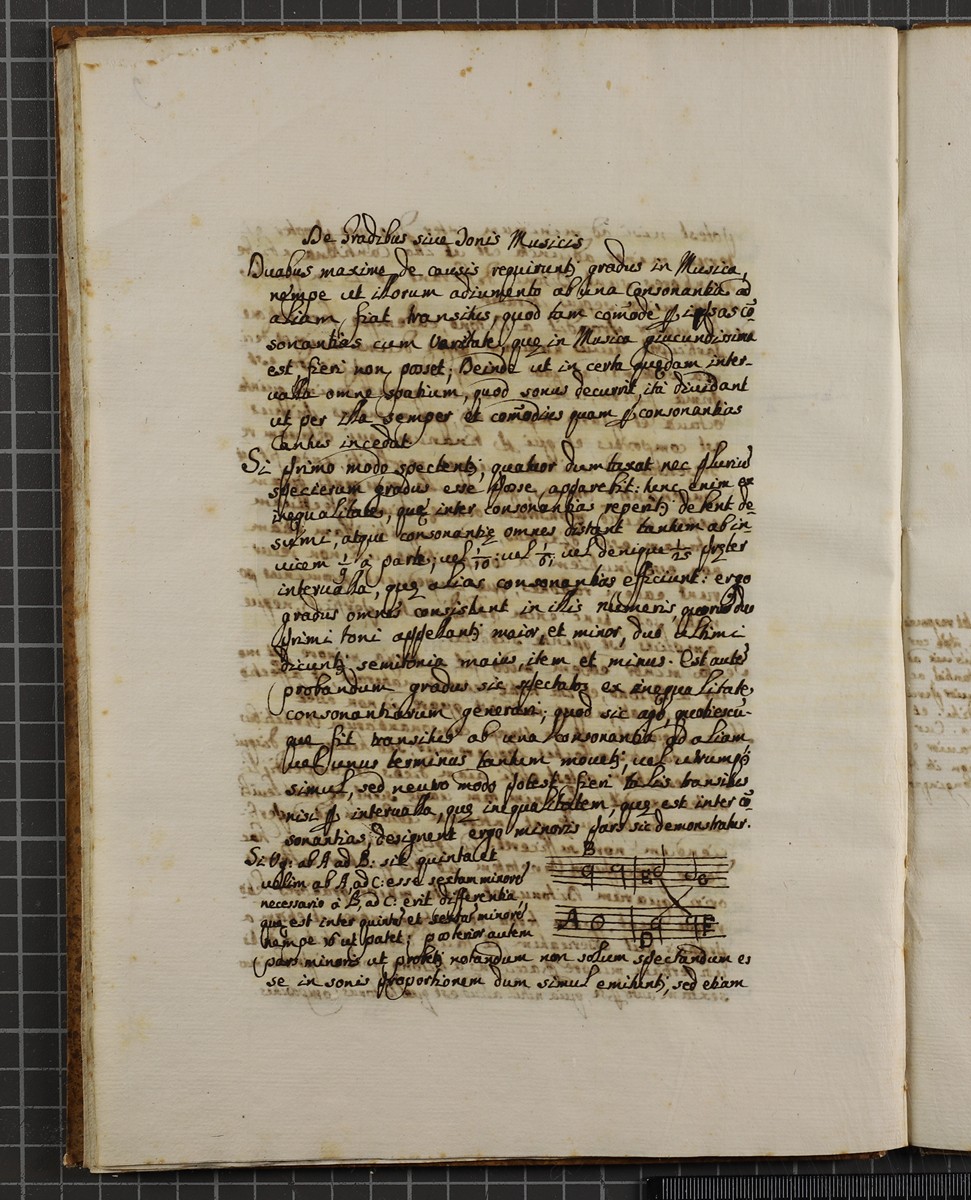 De Gradibus siue Tonis Musicis
Duabus maxime de causis requiruntj gradus in Musica,
nempe ut illorum adiumento ab una Consonantia ad
aliam fiat transitus, quod tam com̄ode p ipsas cō
sonantias cum Varitate, quę in Musica giucundissima
est, fieri non posset; Deinde ut in certa quędam inter-
ualla omne spatium, quod sonus decurrit, ita diuidant
ut per illa semper et com̄odius quam p consonantias
Cantus incedat
Si primo modo spectentj, quatuor dumtaxat nec plurių
specierum gradus esse posse, apparebit: hunc enim ex
inequalitate, quę inter consonantias reperitj debent de-
sumi, atqui consonantię omnes distant tantum ab in
uicem 1/9 a parte; uel 1/10; uel 1/16; uel denique 1/25 pręter
interualla, quę alias consonantias efficiunt: ergo
gradus omnes consistunt in illis numeris, quorū duo
primi toni appellantj maior, et minor, duo ultimi
dicuntj semitonia maius, item et minus. Est autē
probandum gradus sic spectatos ex inęqualitate
consonantiarum generari; quod sic ago, quotiescū-
que fit transitus ab una consonantia ad aliam
uel unus terminus tantum mouetj, uel utrumqꝫ
simul, sed neutro modo potest fieri talis transitus
nisi p interualla, quę inęqualitatem, quę est inter cō
sonantias, designent ergo minoris pars sic demonstratur.
Si Vg: ab A ad B: sit quinta et
uelim ab A, ad C: esse sextam minorē
necessario à B, ad C: erit differentia
quę est inter quintā et sextā minorē
nempe 16 ut patet; posterior autem
pars minoris ut probetj notandum non solum spectandum es
se in sonis proportionem dum simul emittuntj, sed etiam
B
A
D
E